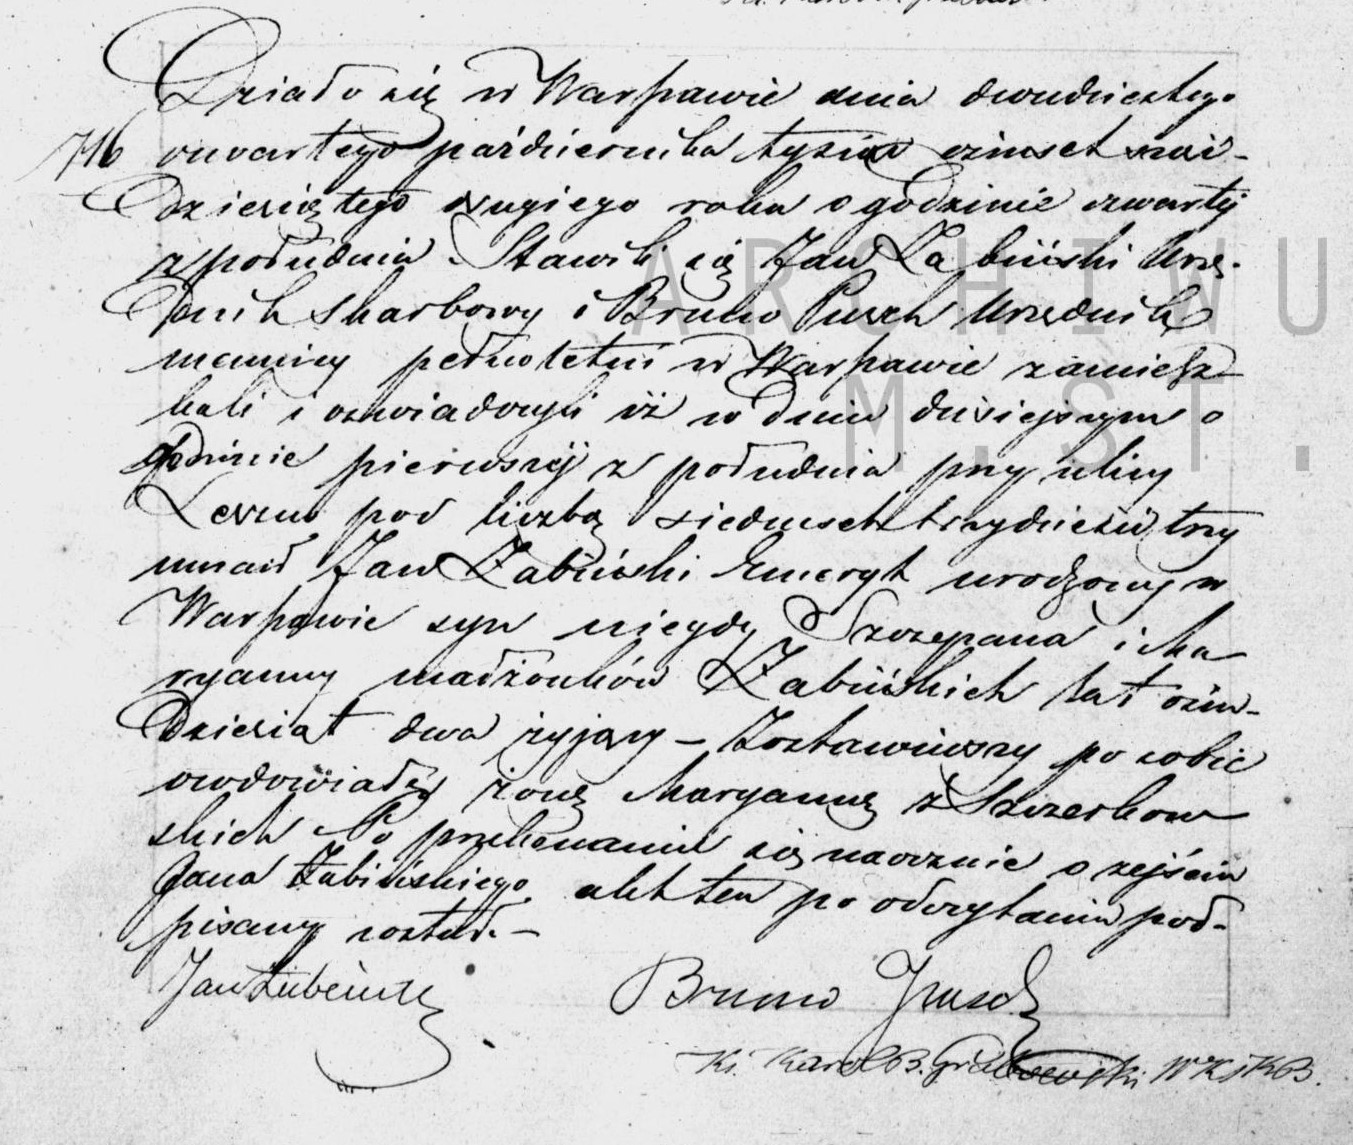 Działo się w Warszawie dnia dwudziestego
746 czwartego października tysiąc ośmset sześć-
dziesiątego drugiego roku o godzinie czwartej
z południa. Stawili się Jan Żabiński Urzę-
dnik skarbowy i Bruno Pusch Urzędnik
pełnoletni w Warszawie zamiesz-
kali i oświadczyli iż w dniu dzisiejszym o
godzinie pierwszej z południa przy ulicy
Leszno pod liczbą siedmset trzydzieści trzy
umarł Jan Żabiński Emeryt urodzony w
Warszawie syn niegdy Szczepana i Ma
ryanny małżonków Żabińskich lat ośm-
dziesiąt dwa żyjący – Zostawiwszy po sobie
owdowiałą żonę Maryannę z Szczerkow
skich Po przekonaniu się naocznie o zejściu
Jana Żabińskiego, akt ten po odczytaniu pod-
pisany został. –
Bruno
Ks. Karol B.
ARCHIWU
M.ST.